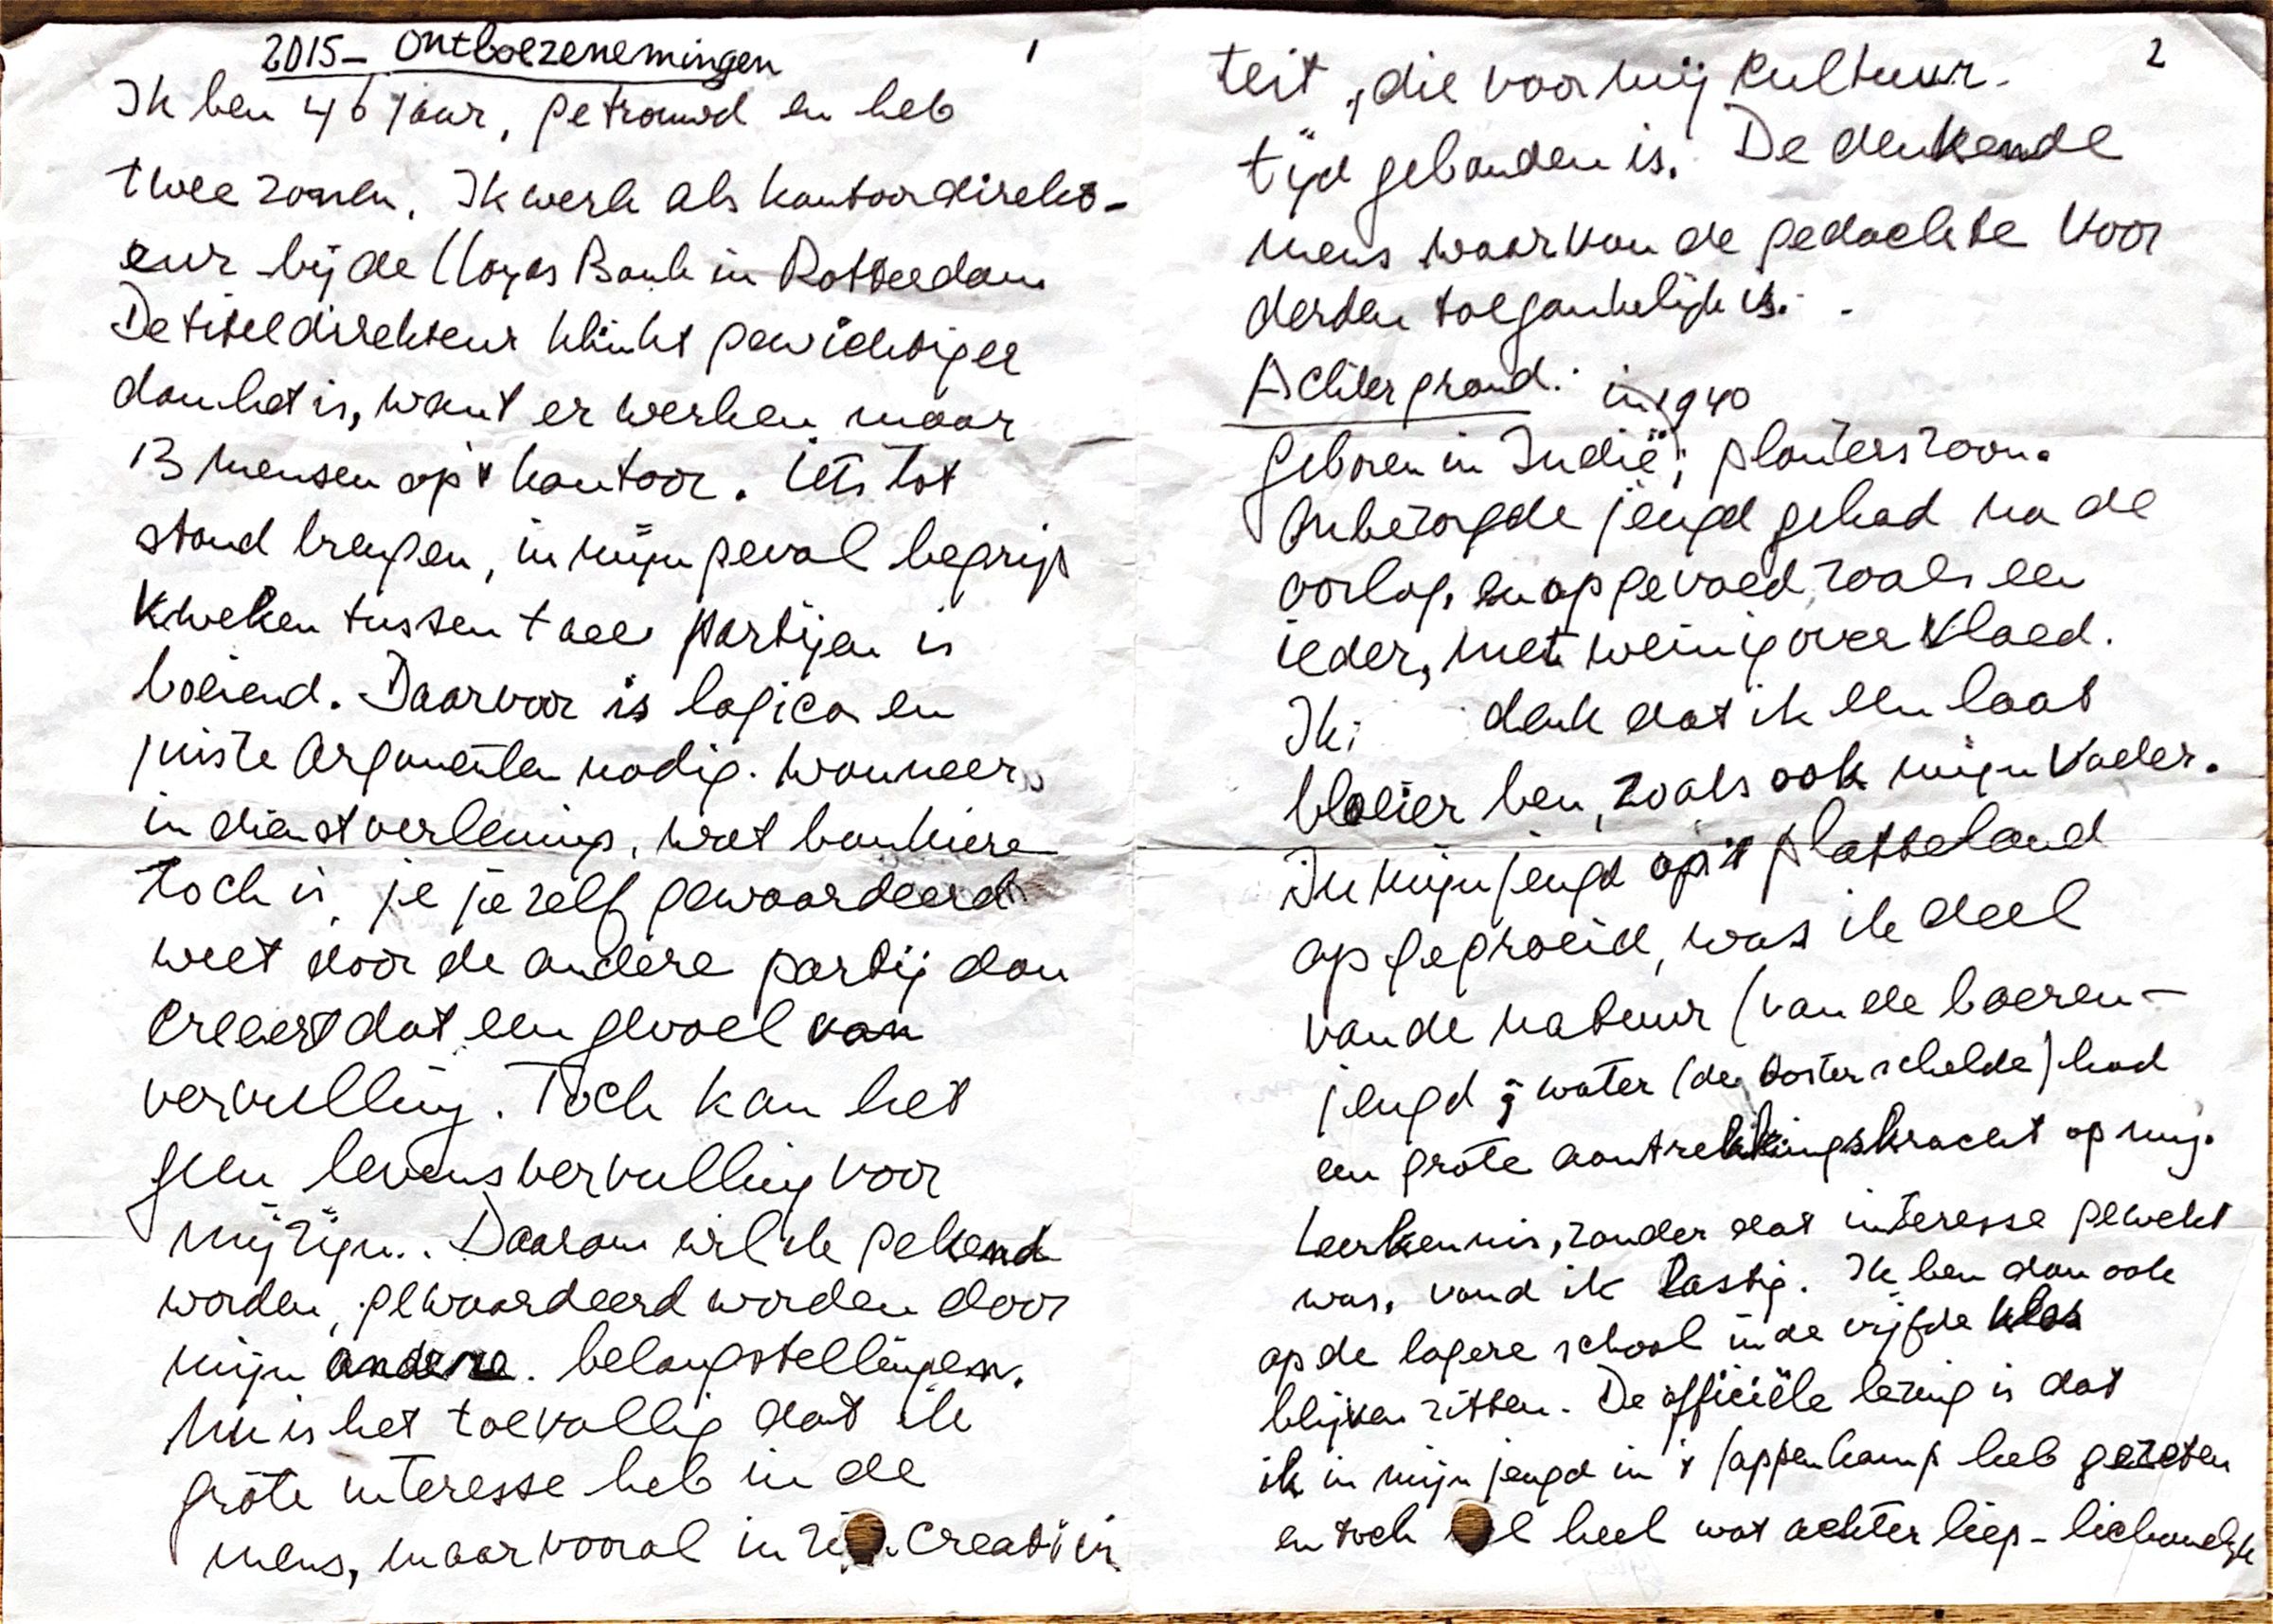 2015 - Ontboezenemingen
1
Ik ben 46 jaar, getrouwd en heb
twee zonen. Ik werk als kantoordirekt-
eur bij de Lloyds Bank in Rotterdam.
De titel direkteur klinkt gewichtiger
dan het is, want er werken maar
13 mensen op 't kantoor. Iets tot
stand brengen, in mijn geval begrip
kweken tussen twee partijen is
boeiend. Daarvoor is logica en
juiste argumenten nodig. Wanneer
in dienstverlening, wat bankiere
toch is, je jezelf gewaardeerd
weet door de andere partij dan
creeert dat een gevoel van
vervulling. Toch kan het
geen levensvervulling voor
mij zijn.. Daarom wil ik gekend
worden, gewaardeerd worden door
mijn andere. belangstellingen.
Nu is het toevallig dat ik
grote interesse heb in de
mens, maar vooral in creativi
2
teit, die voor mij kultuur-
tijd gebonden is. De denkende
mens waarvan de gedachte voor
derden toegankelijk is.
Achtergrond: in 1940
geboren in Indië; planterszoon.
Onbezorgde jeugd gehad na de
oorlog, en opgevoed, zoals een
ieder, met weinig overvloed.
Ik denk dat ik een laat
bloeier ben, zoals ook mijn Vader.
In mijn jeugd op 't platteland
opgegroeid, was ik deel
van de natuur (van de boeren-
jeugd; water (de Oosterschelde) had
een grote aantrekkingskracht op mij.
Leerkennis, zonder dat interesse gewekt
was, vond ik lastig. Ik ben dan ook
op de lagere school in de vijfde klas
blijven zitten. De officiële lezing is dat
ik in mijn jeugd in 't Jappenkamp heb gezeten
en toch heel wat achter liep - lichamelijk